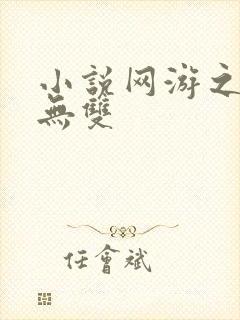 小説网游之
無雙
任會斌